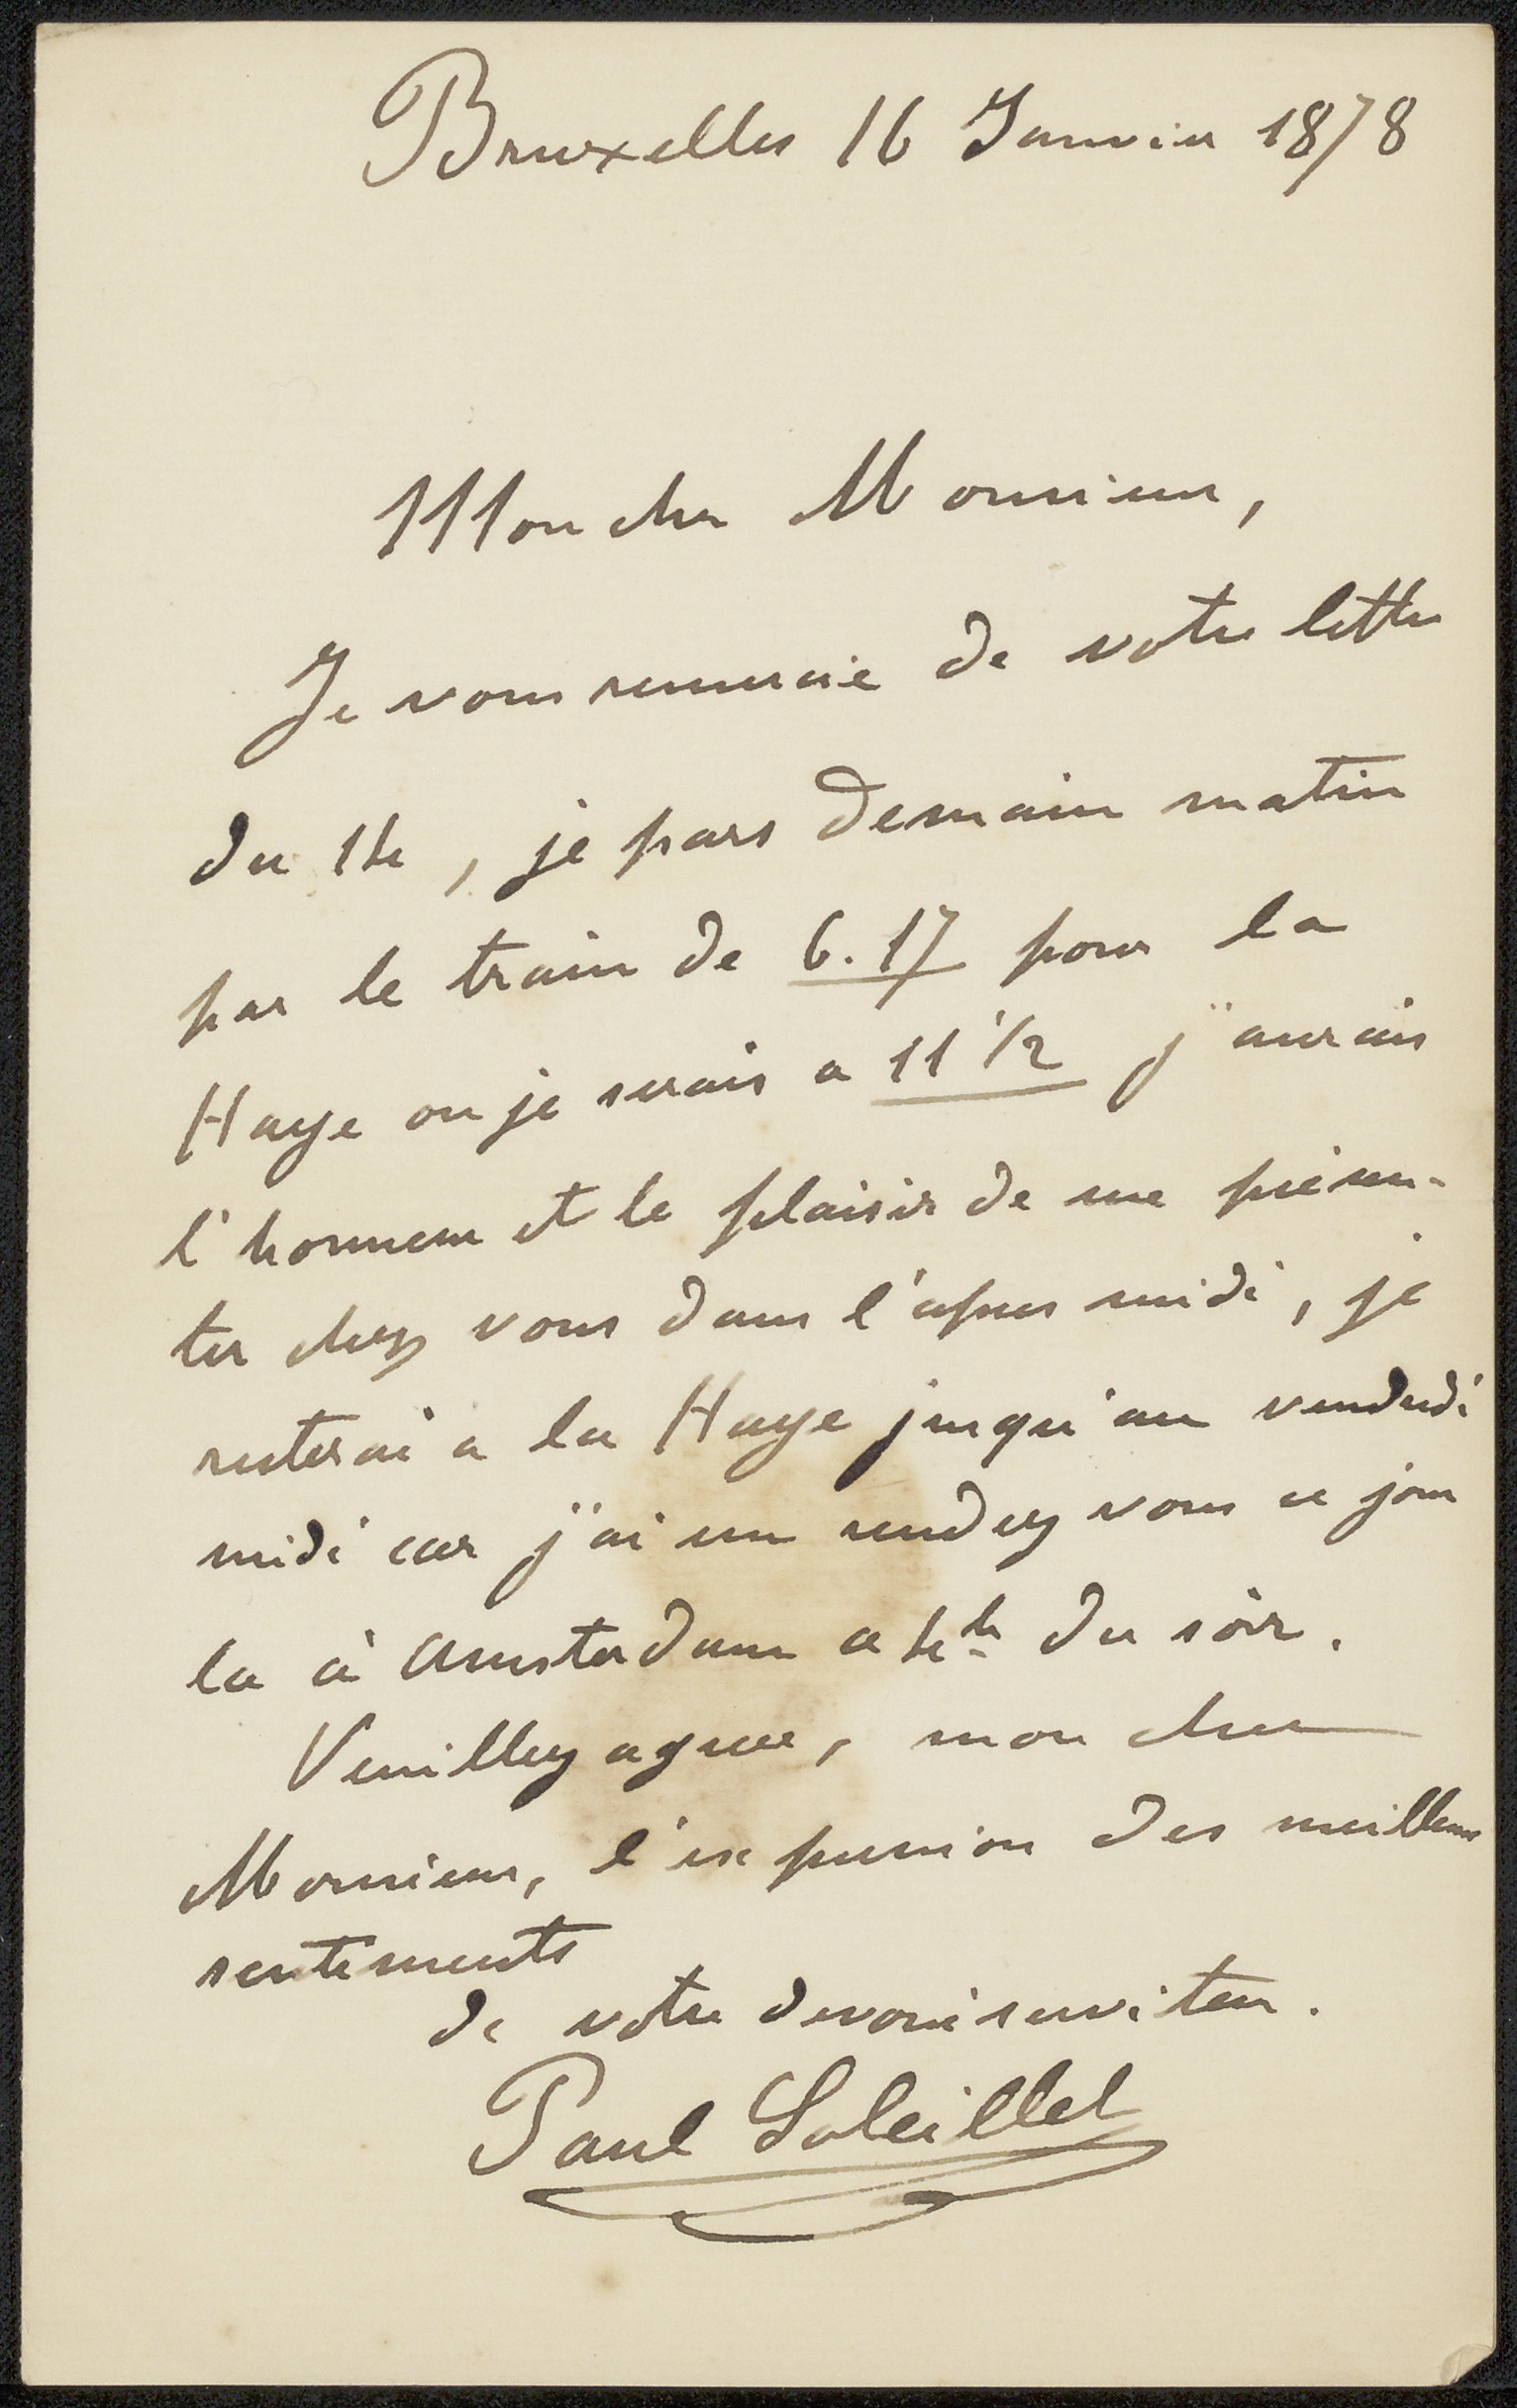 Bruxelles 16 Janvier 1878
Mon cher Monsieur,
Je vous remercie de votre lettre
du 14, je pars demain matin
par le train de 6.17 pour la
Haye ou je serais a 11 1/2 j'aurais
l'honneur et le plaisir de me présen-
ter chez vous dans l'apres midi, je
resterai a la Haye jusqu'au vendredi
midi car j'ai un rendez vous ce jour
la à Amsterdam a 4h du soir.
Veuillez agreer, mon cher
Monsieur, l'expression des meilleurs
sentiments
de votre devoué serviteur.
Paul Soleillet